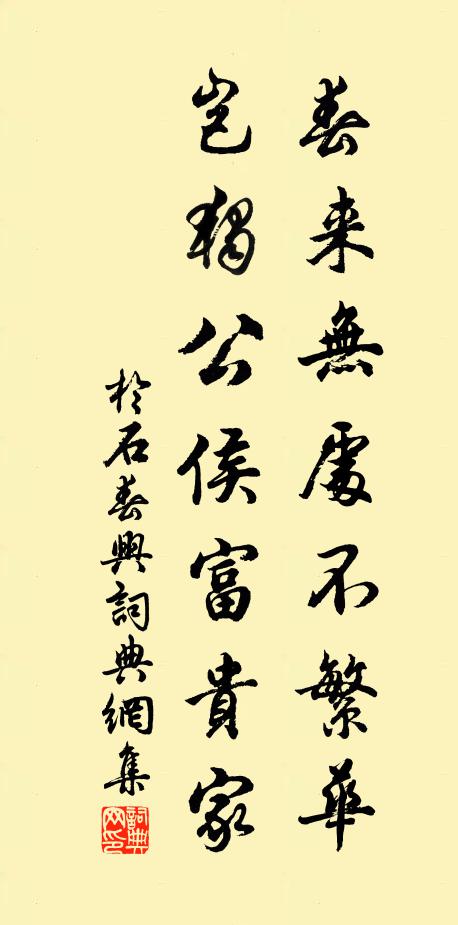 春来無處不繁華
豈獨公侯富貴家
於石春興詞典網集
詞典网印